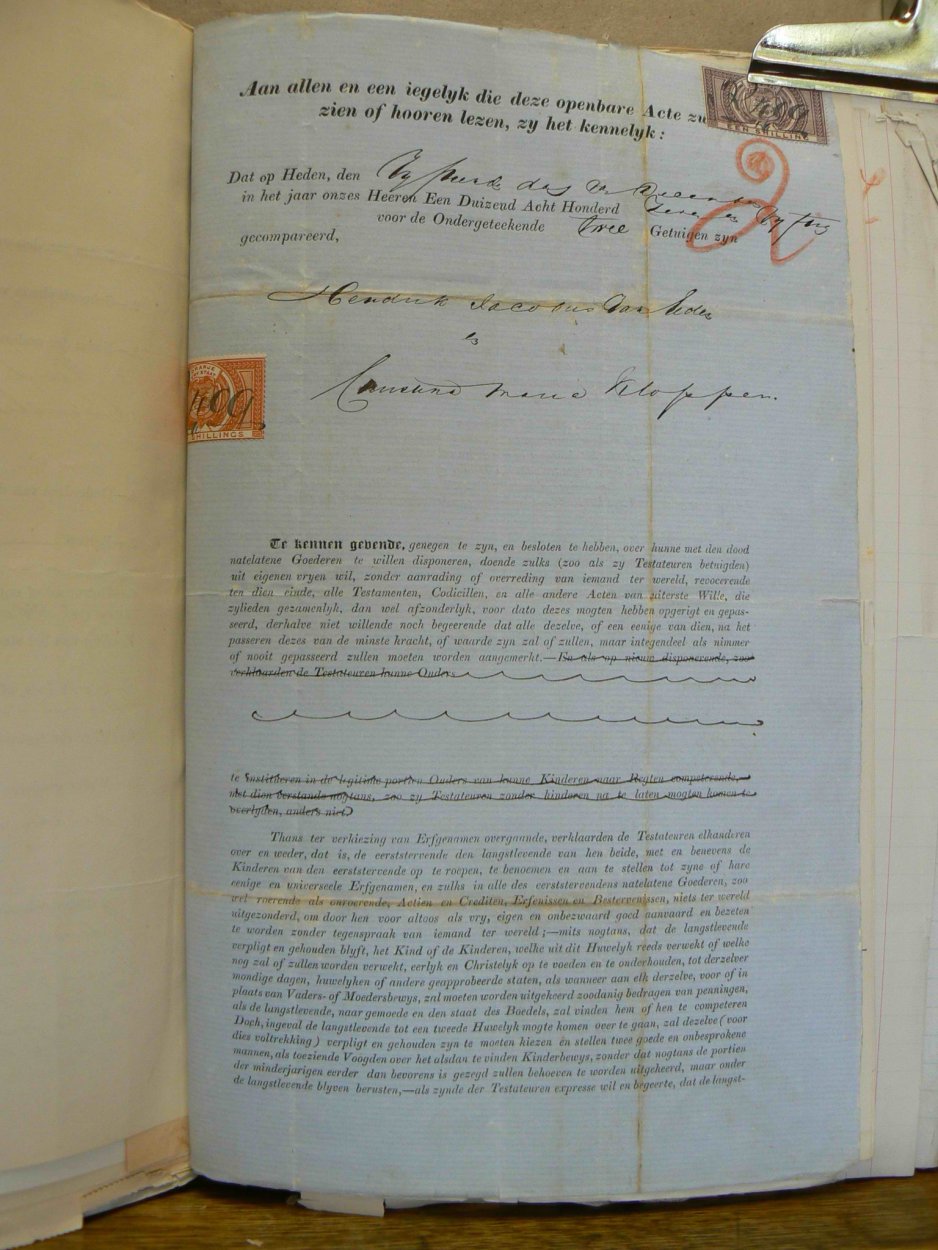 Aan allen en een iegelyk die deze openbare Acte zu
zien of hooren lezen, zy het kennelyk:
EEN SHILLING
Dat op Heden, den
in het jaar onzes Heeren Een Duizend Acht Honderd
voor de Ondergeteekende twee Getuigen zyn
gecompareerd,
Hendrik Jacobus Van
en
Maria Kloppen.
SHILLINGS
Te kennen gevende, genegen te zyn, en besloten te hebben, over hunne met den dood
natelatene Goederen te willen disponeren, doende zulks (zoo als zy Testateuren betuigden)
uit eigenen vryen wil, zonder aanrading of overreding van iemand ter wereld, revocerende
ten dien einde, alle Testamenten, Codicillen, en alle andere Acten van uiterste Wille, die
zylieden gezamenlyk, dan wel afzonderlyk, voor dato dezes mogten hebben opgerigt en gepas-
seerd, derhalve niet willende noch begeerende dat alle dezelve, of een eenige van dien, na het
passeren dezes van de minste kracht, of waarde zyn zal of zullen, maar integendeel als nimmer
of nooit gepasseerd zullen moeten worden aangemerkt.—En als op nieuw disponerende, zoo
verklaarden de Testateuren hunne Ouders
te Institueren in de legitime portien Ouders van hunne Kinderen naar Regten competerende,
met dien verstande nogtans, zoo zy Testateuren zonder kinderen na te laten mogten komen te
overlyden, anders niet.
Thans ter verkiezing van Erfgenamen overgaande, verklaarden de Testateuren elkanderen
over en weder, dat is, de eerststervende den langstlevende van hen beide, met en benevens de
Kinderen van den eerststervende op te roepen, te benoemen en aan te stellen tot zyne of hare
eenige en universeele Erfgenamen, en zulks in alle des eerststervendens natelatene Goederen, zoo
wel roerende als onroerende, Actien en Crediten, Erfenissen en Bestervenissen, niets ter wereld
uitgezonderd, om door hen voor altoos als vry, eigen en onbezwaard goed aanvaard en bezeten
te worden zonder tegenspraak van iemand ter wereld;—mits nogtans, dat de langstlevende
verpligt en gehouden blyft, het Kind of de Kinderen, welke uit dit Huwelyk reeds verwekt of welke
nog zal of zullen worden verwekt, eerlyk en Christelyk op te voeden en te onderhouden, tot derzelver
mondige dagen, huwelyken of andere geapprobeerde staten, als wanneer aan elk derzelve, voor of in
plaats van Vaders- of Moedersbewys, zal moeten worden uitgekeerd zoodanig bedragen van penningen,
als de langstlevende, naar gemoede en den staat des Boedels, zal vinden hem of hen te competeren
Doch, ingeval de langstlevende tot een tweede Huwelyk mogte komen over te gaan, zal dezelve (voor
dies voltrekking) verpligt en gehouden zyn te moeten kiezen en stellen twee goede en onbesprokene
mannen, als toeziende Voogden over het alsdan te vinden Kinderbewys, zonder dat nogtans de portien
der minderjarigen eerder dan bevorens is gezegd zullen behoeven te worden uitgekeerd, maar onder
de langstlevende blyven berusten,—als zynde der Testateuren expresse wil en begeerte, dat de langst-